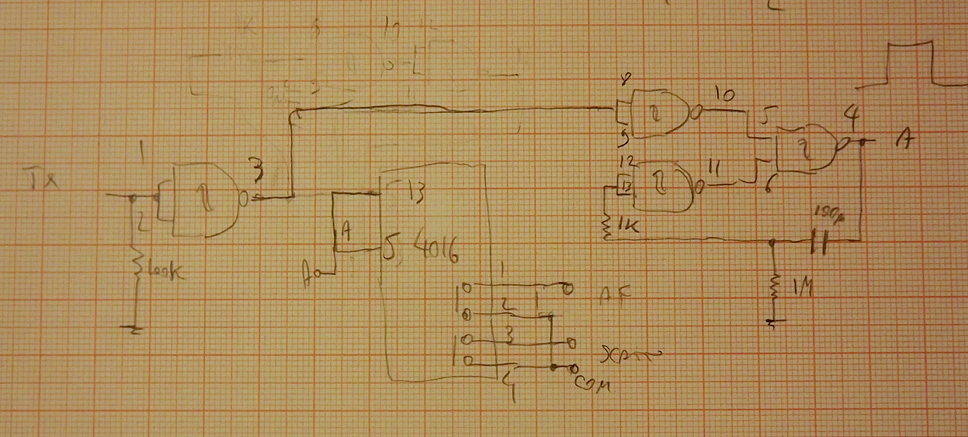 8
10
5
4
A
9
1
3
12
11
6
Tx
13
13
2
1K
100µ
A
5
4016
100K
A
1
AF
1M
2
3
4
COM